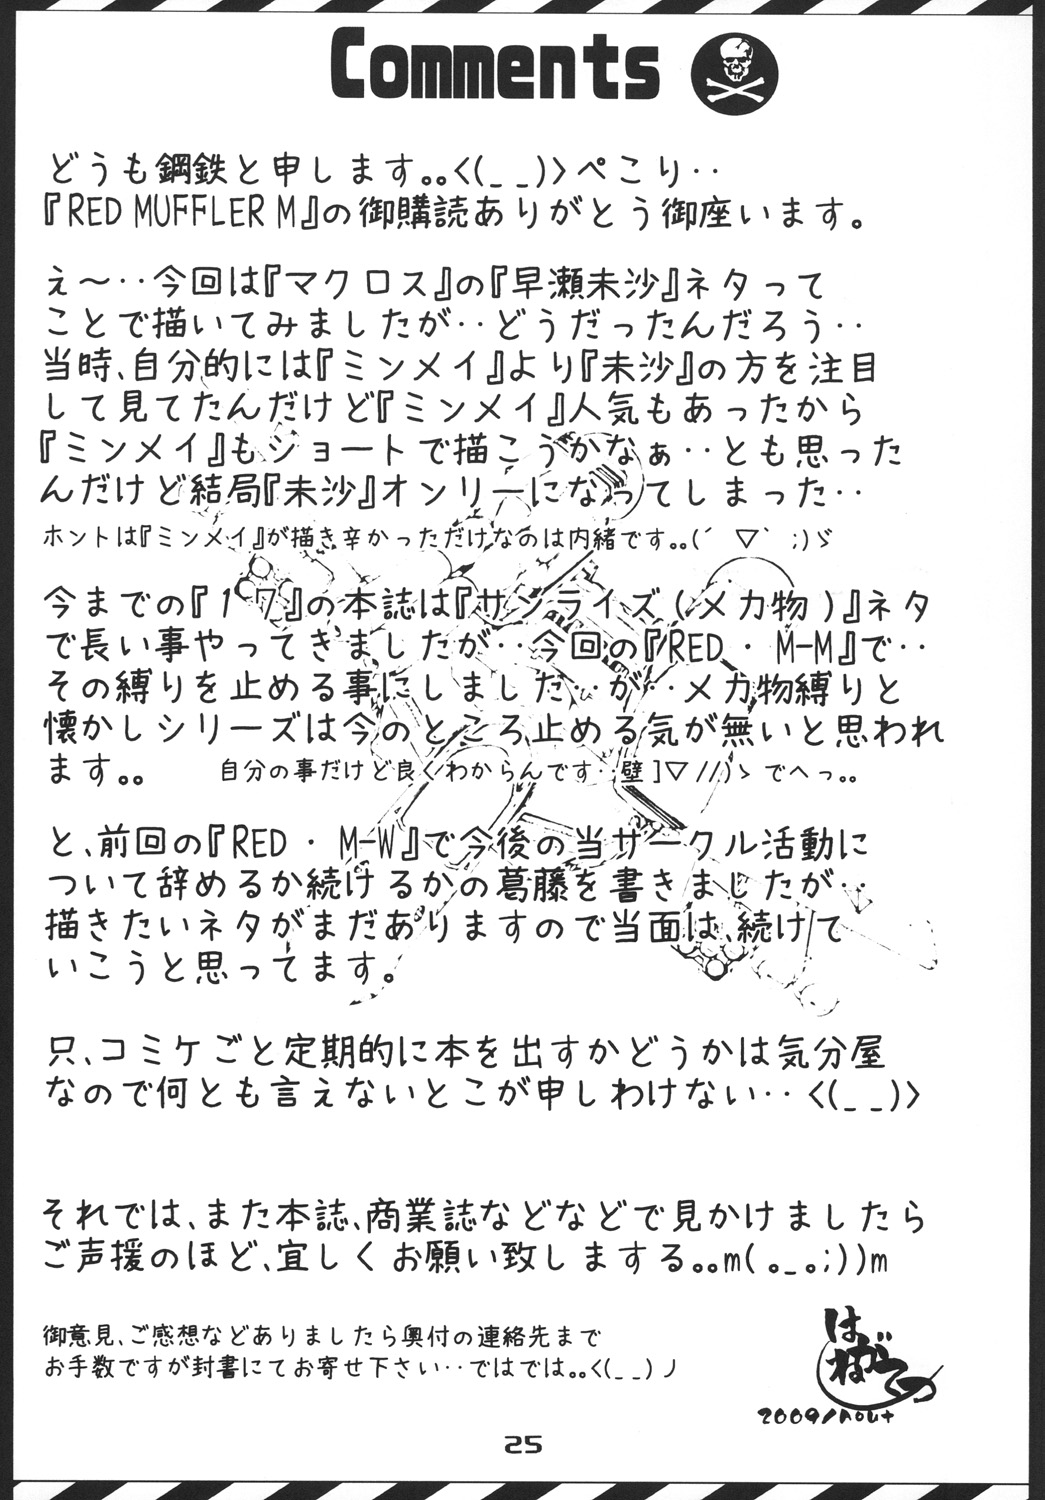 Comments
どうも鋼鉄と申します｡｡<(_ _)>ぺこり‥
『RED MUFFLER M』の御購読ありがとう御座います。
え～‥今回は『マクロス』の『早瀬未沙』ネタって
ことで描いてみましたが‥どうだったんだろう‥
当時、自分的には『ミンメイ』より『未沙』の方を注目
して見てたんだけど『ミンメイ』人気もあったから
『ミンメイ』もショートで描こうかなぁ‥とも思った
んだけど結局『未沙』オンリーになってしまった‥
ホントは『ミンメイ』が描き辛かっただけなのは内緒です｡｡(´ ▽` ;)ゞ
今までの『１７』の本誌は『サンライズ(メカ物)』ネタ
で長い事やってきましたが‥今回の『RED・M-M』で‥
その縛りを止める事にしました‥が‥メカ物縛りと
懐かしシリーズは今のところ止める気が無いと思われ
ます｡｡ 自分の事だけど良くわからんです‥壁]▽//)ゝでへっ｡｡
と、前回の『RED・M-W』で今後の当サークル活動に
ついて辞めるか続けるかの葛藤を書きましたが‥
描きたいネタがまだありますので当面は、続けて
いこうと思ってます。
只、コミケごと定期的に本を出すかどうかは気分屋
なので何とも言えないとこが申しわけない‥<(_ _)>
それでは、また本誌、商業誌などなどで見かけましたら
ご声援のほど、宜しくお願い致しまする｡｡m( ｡_｡;))m
御意見、ご感想などありましたら奥付の連絡先まで
お手数ですが封書にてお寄せ下さい‥ではでは｡｡<(_ _)ノ
はがねてつ
2009/
25